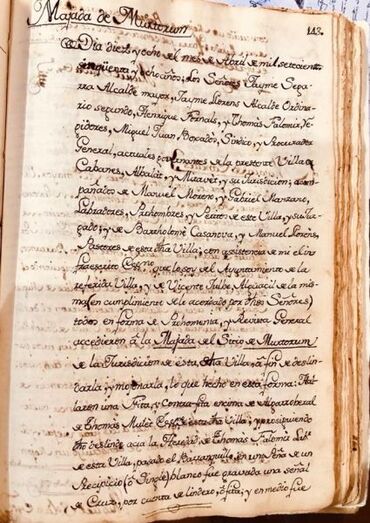 Majada de Muxtorum
143.
Dia diez y ocho del mes de Abril de mil setecientos
cinquenta y ocho años; Los Señores Jayme Sega-
rra Alcalde mayor, Jayme Llorens Alcalde Ordina-
rio segundo, Henrique Francés, y Thomas Palomir Re-
gidores, Miguel Juan Boxadós, Sindico, y Procurador
General, actuales governantes de la presente Villa de
Cabanes, Albalát, y Miravét, y su Jurisdicion; acom-
pañados de Manuel Moreno, y Gabriel Manzano,
Labradores, Prohombres, y Peritos de esta Villa, y su Juz-
gado; y de Bartholome Casanova, y Manuel Llorens,
Pastores de esta dha Villa; con assistencia de mi el in-
fraescrito Essno, que lo soy del Ayuntamiento de la
referida Villa, y de Vicente Julbe Alguacil de la mis-
ma (en cumplimiento de lo acordado por dhos Señores)
todos en forma de Prohomenia, y Revista General
accedieron à la Majada del Sitio de Muxtorum
de la Jurisdicion de esta dha Villa, à fin de deslin-
darla, y mojonarla, lo que hecho en esta forma: Hal-
laron una Fita, y Contrafita encima de Algarroberal
de Thomas Mulet Essno de esta dha Villa; y prosiguiendo
dho deslinde acia la Heredad de Thomas Palomir Labr
de esta Villa, pasado el Barranquillo, en una Peña de un
Recipicio (ó Single) blanco fue gravada una señal
de Cruz, por cuenta de lindero, ò fita; y en medio fue